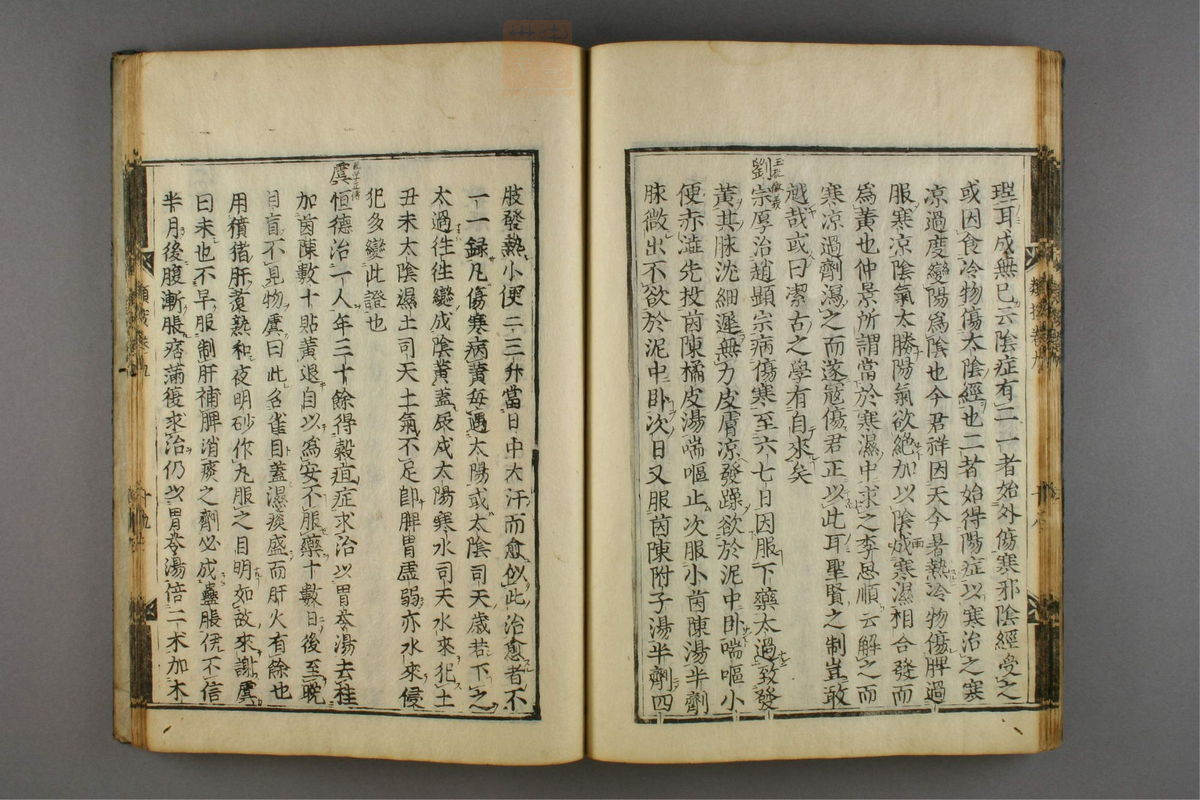 理耳成無已云陰症有二一者始外傷寒邪陰經受之
或因食冷物傷太陰經也二者始得陽症以寒治之寒
凉過度變陽爲陰也今君祥因天令暑熱冷物傷脾過
服寒凉陰氣太勝陽氣欲絶加以陰雨寒濕相合發而
爲黄也仲景所謂當於寒濕中求之李思順云解之而
寒凉過劑瀉之而逐寇傷君正以此耳聖賢之制豈敢
越哉或曰潔古之學有自來矣
劉宗厚治趙顯宗病傷寒至六七日因服下藥太過致發
黄其脉沈細遲無力皮膚凉發躁欲於泥中卧喘嘔小
便赤澁先投茵陳橘皮湯喘嘔止次服小茵陳湯半劑
脉微出不欲於泥中卧次日又服茵陳附子湯半劑四
肢發熱小便二三升當日中大汗而愈似此治愈者不
一一録凡傷寒病黄每遇太陽或太陰司天歳若下之
太過徃徃變成陰黄蓋辰戌太陽寒水司天水來犯土
丑未太陰濕土司天土氣不足即脾胃虚弱亦水來侵
犯多變此證也
虞恒德治一人年三十餘得穀疸症求治以胃苓湯去桂
加茵陳數十貼黄退自以爲安不服藥十數日後至晩
目盲不見物虞曰此名雀目蓋濕痰盛而肝火有餘也
用獖猪肝煑熟和夜明砂作丸服之目明如故來謝虞
曰未也不早服制肝補脾消痰之劑必成蠱脹伊不信
半月後腹漸脹痞滿復求治仍以胃苓湯倍二术加木